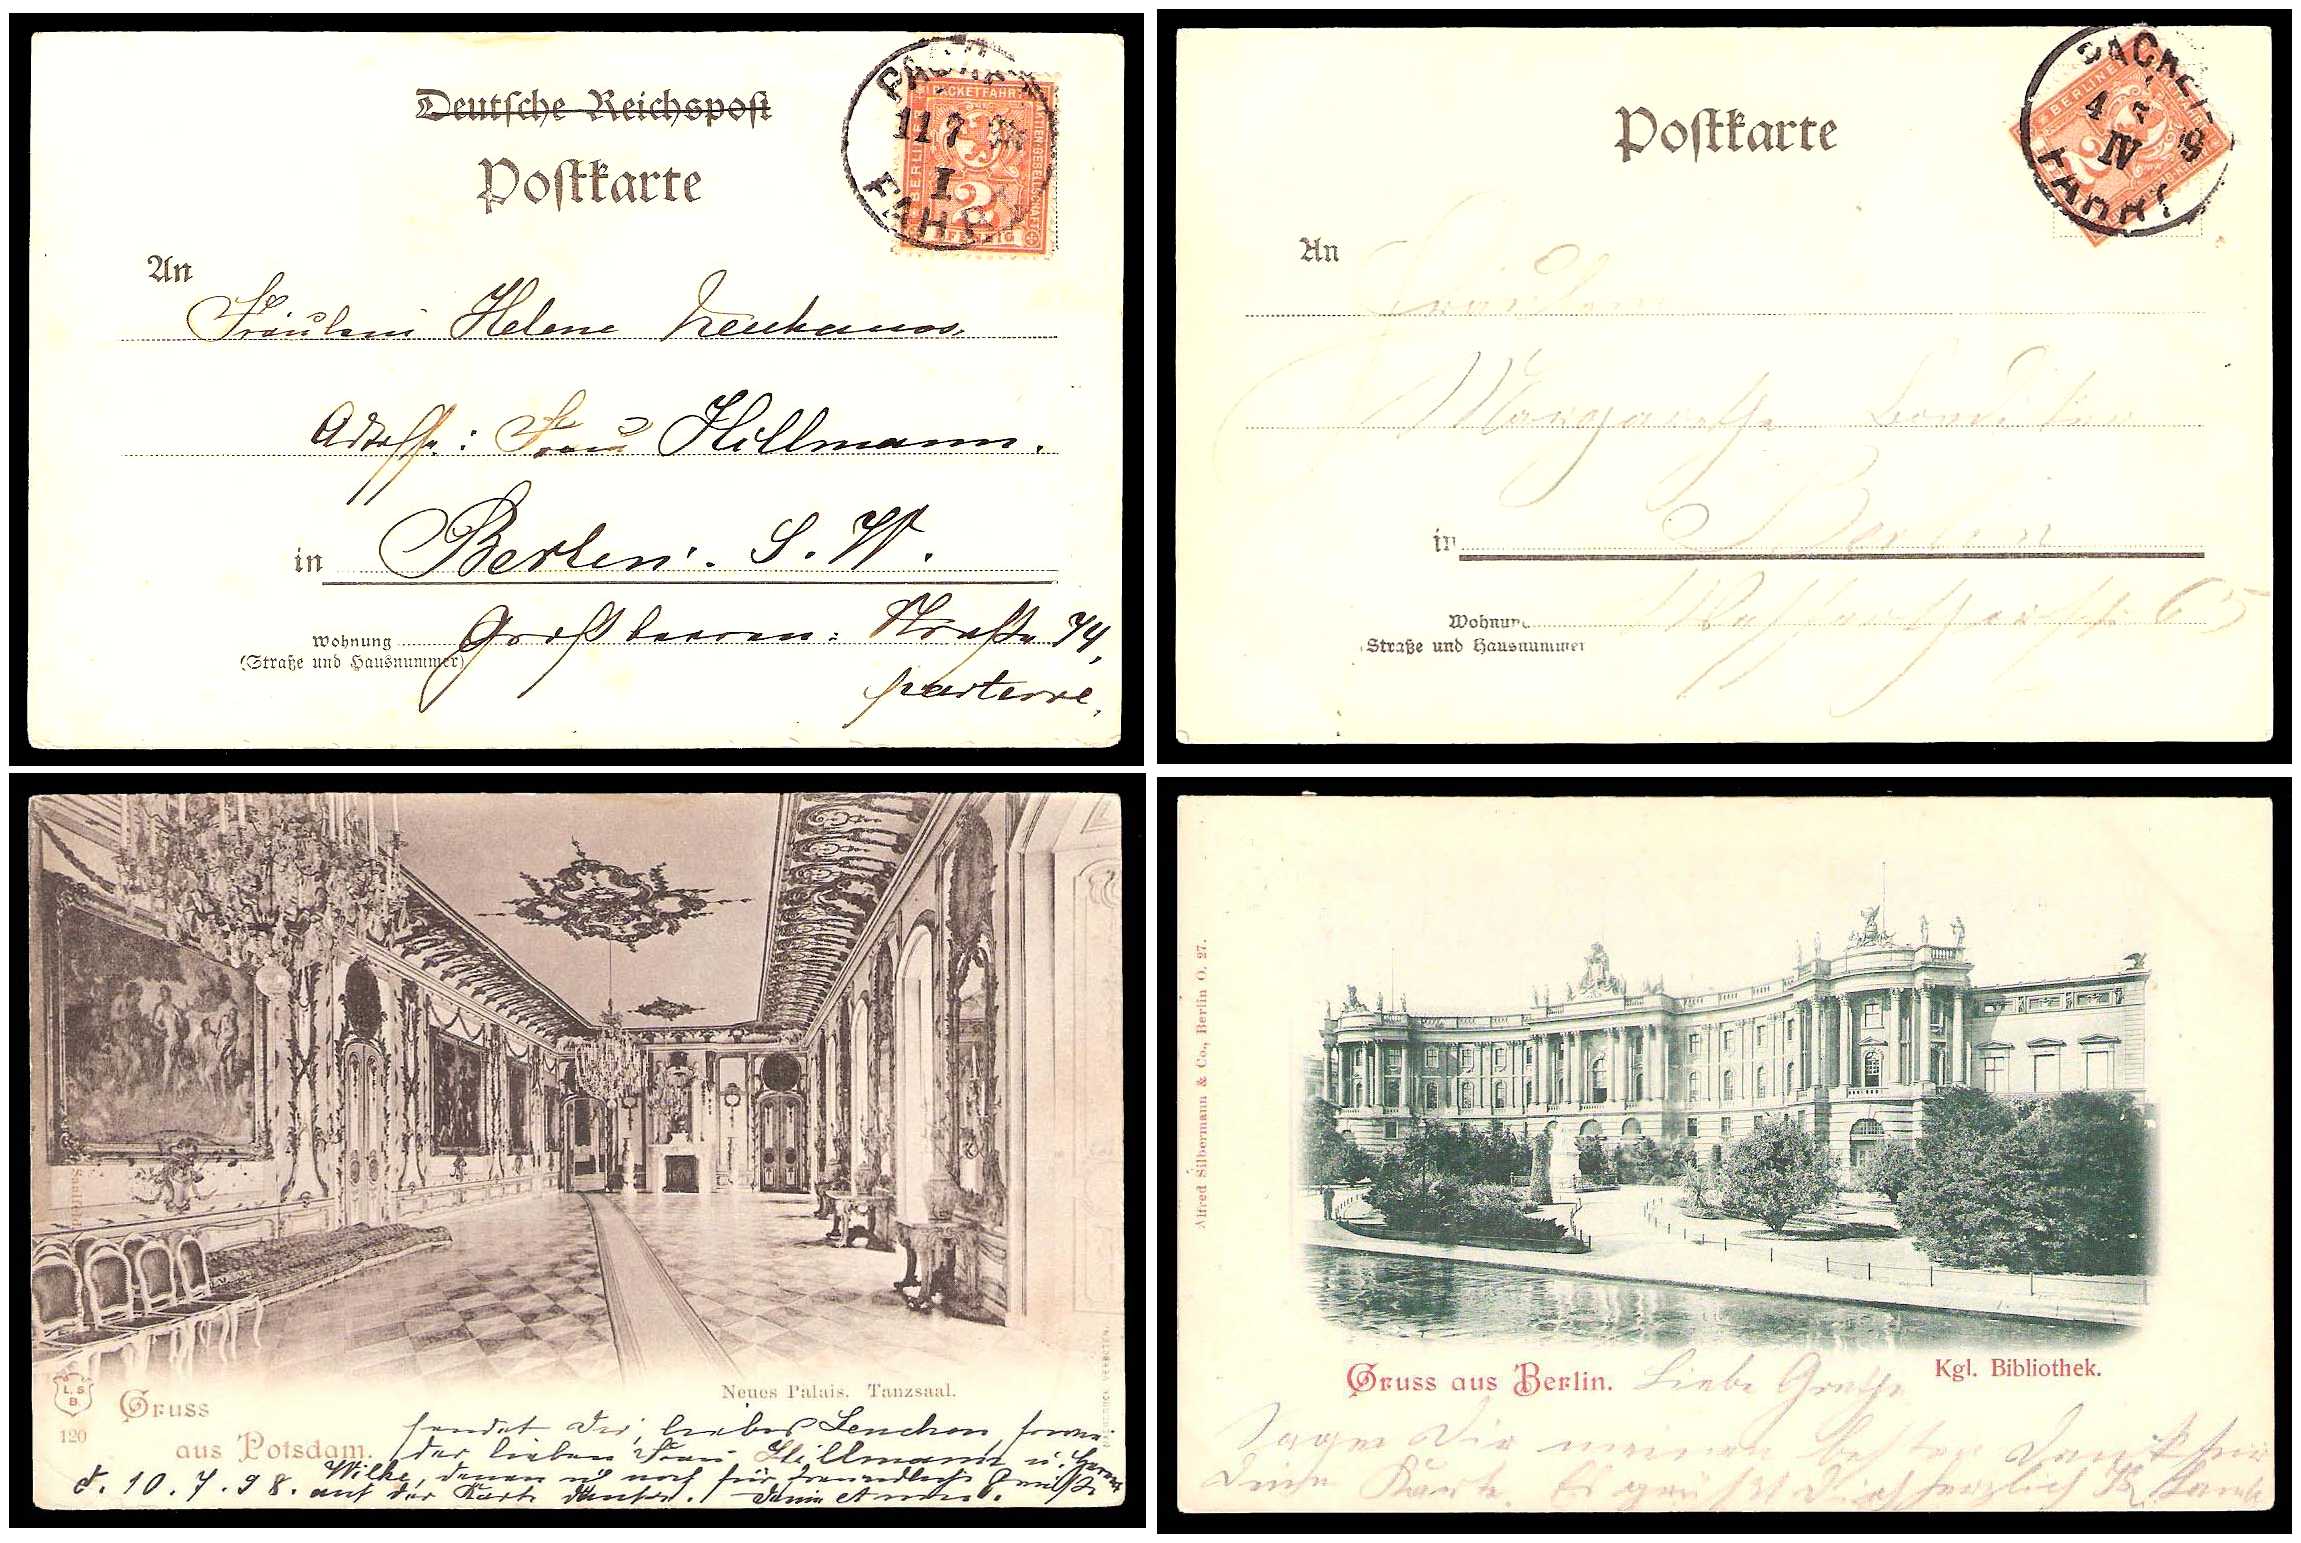 Deutsche Reichspost
Postkarte
PACKETFAHRT
11 7 98
I
BERLINER PACKETFAHRT ACTIEN-GESELLSCHAFT
2
PFENNIG
An
Fräulein Helene Neuhaus,
Adresse: Frau Hillmann.
in Berlin. S. W.
Wohnung Großbeeren: Straße 74,
(Straße und Hausnummer)
parterre.
Postkarte
PACKET-
4
IV
FAHRT
BERLINER
2
An
Fräulein
Margarethe
in Berlin
Wohnung 65
(Straße und Hausnummer
L. S.
B.
120
Gruss
aus Potsdam.
Neues Palais. Tanzsaal.
sendet Dir, liebes Lenchen, sowie
der lieben Frau Hillmann u. Herrn
d. 10. 7. 98. Wilke, denen noch für freundliche Grüße
auf der Karte danke. Deine Anna.
Alfred Silbermann & Co., Berlin O. 27.
Gruss aus Berlin.
Kgl. Bibliothek.
Liebe Grethe
Sage Dir meinen besten Dank für
Deine Karte. Es grüßt Dich herzlich